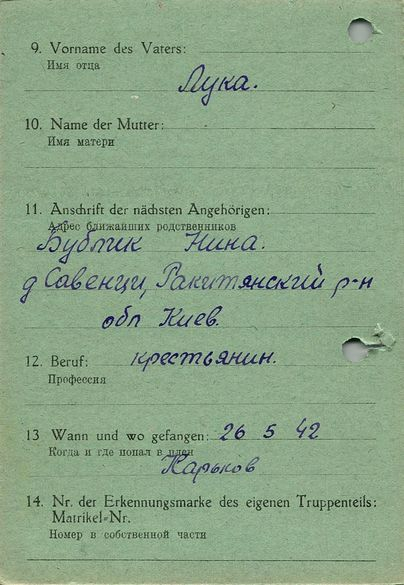 9. Vorname des Vaters:
Имя отца
Лука.
10. Name der Mutter:
Имя матери
11. Anschrift der nächsten Angehörigen:
Адрес ближайших родственников
Бублик Нина.
д Савенци, Ракитянский р-н
обл Киев.
12. Beruf: крестьянин.
Профессия
13 Wann und wo gefangen: 26 5 42
Когда и где попал в плен
Карьков
14. Nr. der Erkennungsmarke des eigenen Truppenteils:
Matrikel-Nr.
Номер в собственной части